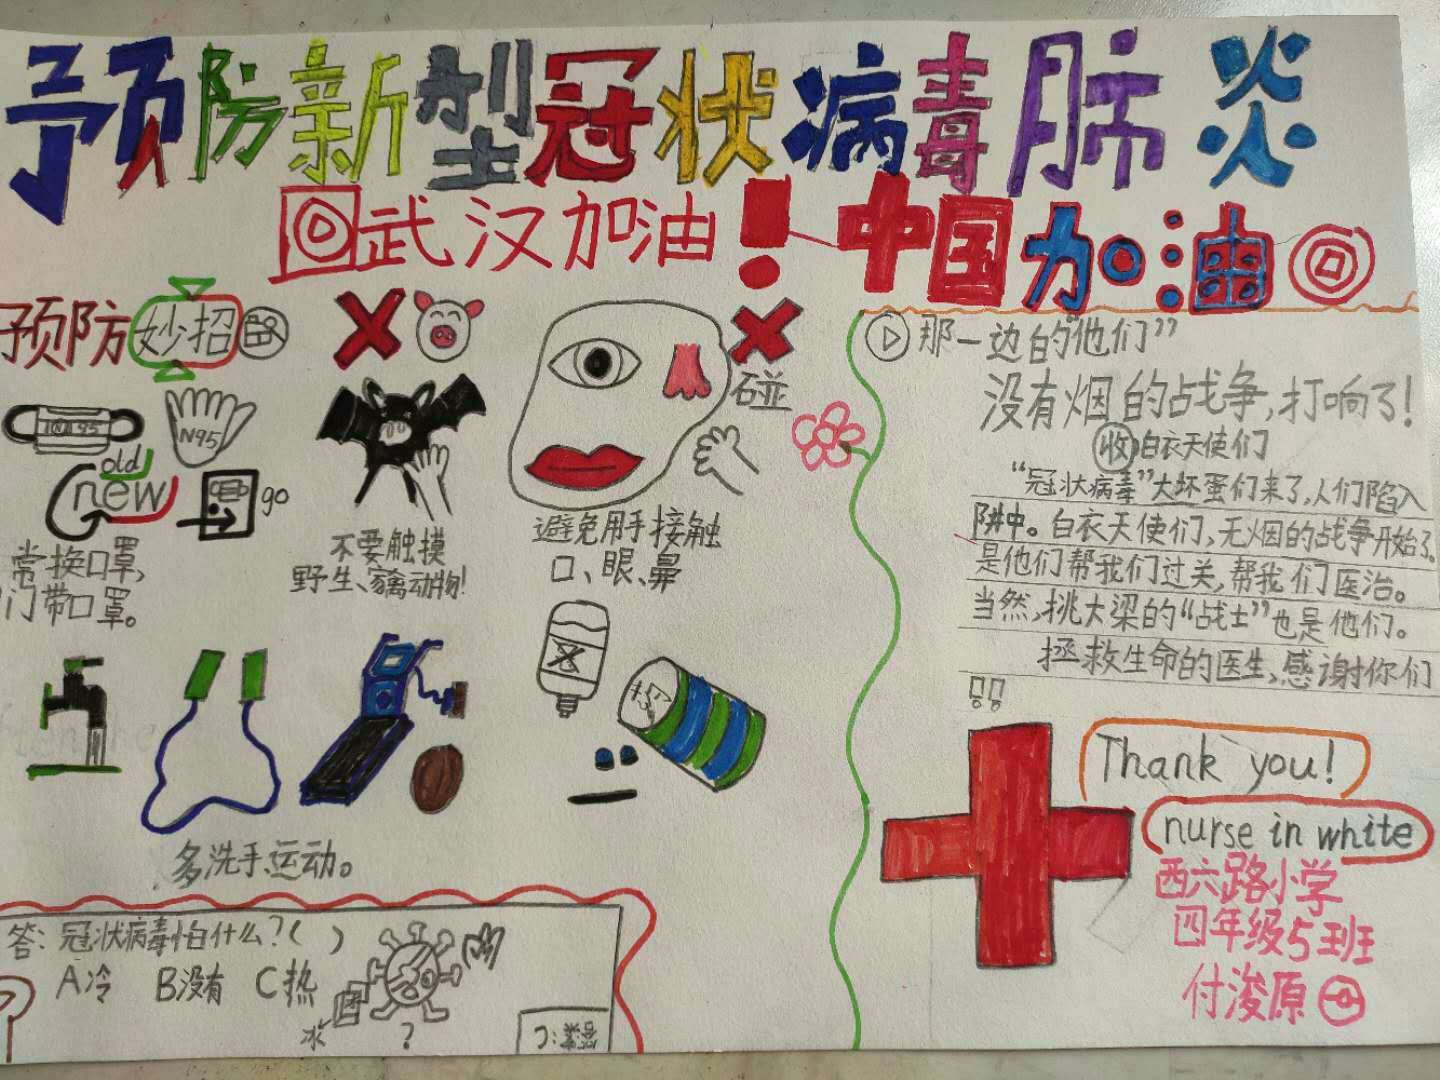 预防新型冠状病毒肺炎
武汉加油！中国加油
预防妙招
碰
N95
old
new
go
常换口罩，
门带口罩。
不要触摸
野生、家禽动物！
避免用手接触
口、眼、鼻
多洗手、运动。
答：冠状病毒怕什么？（ ）
A冷 B没有 C热
冰
?
那一边的“他们”
没有烟的战争，打响了！
收 白衣天使们
“冠状病毒”大坏蛋们来了，人们陷入
陷阱中。白衣天使们，无烟的战争开始了。
是他们帮我们过关，帮我们医治。
当然，挑大梁的“战士”也是他们。
拯救生命的医生，感谢你们
!!
Thank you!
nurse in white
西六路小学
四年级5班
付浚原